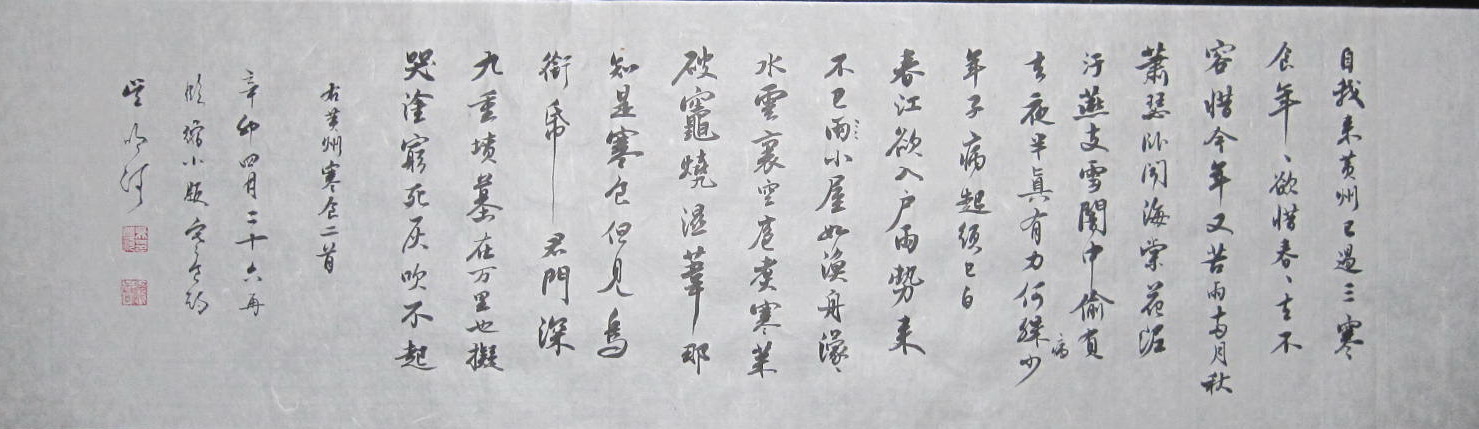 自我來黃州已過三寒
食年〻欲惜春〻去不
容惜今年又苦雨兩月秋
蕭瑟卧聞海棠花泥
汙燕支雪闇中偷負
去夜半真有力何殊少
年子病起須已白
春江欲入户雨勢來
不已雨小屋如漁舟濛〻
水雲裏空庖煮寒菜
破竈燒濕葦那
知是寒食但見烏
銜帋君門深
九重墳墓在万里也擬
哭塗窮死灰吹不起
右黃州寒食二首
辛卯四月二十六再
臨縮小版